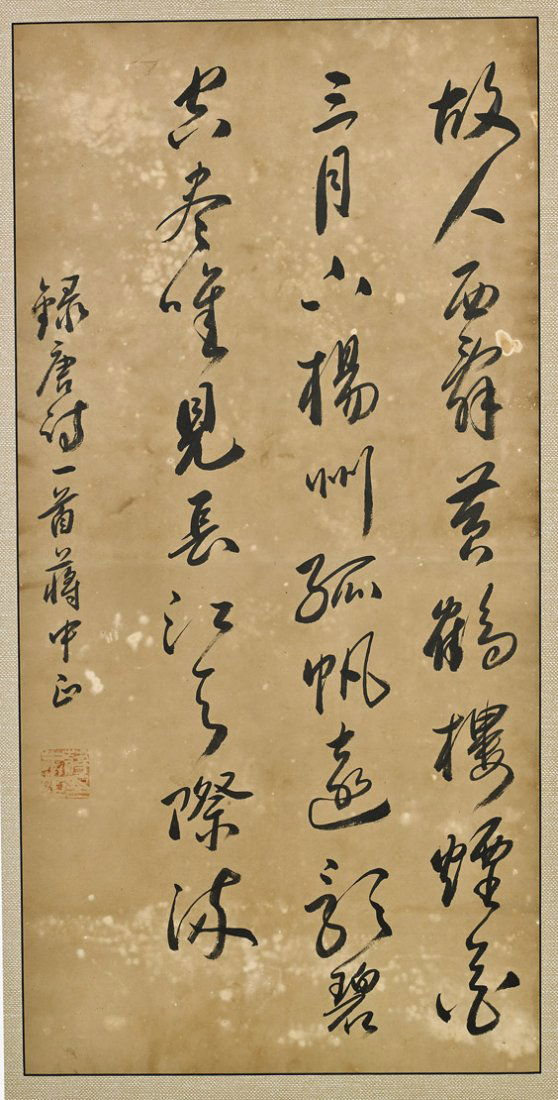 故人西辭黃鶴樓煙花
三月下楊州孤帆遠影碧
空盡唯見長江天際流
錄唐詩一首蔣中正